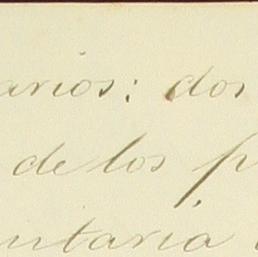 arios: dos
de los p
ntaria